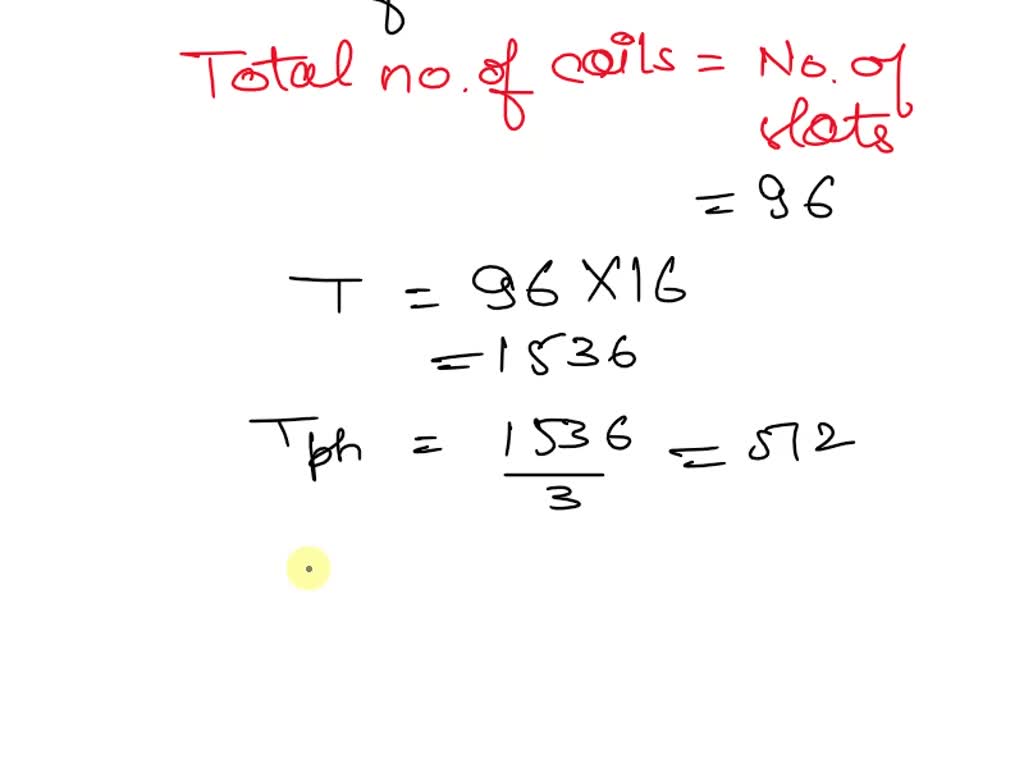 Total no. of coils = No. of
slots
= 96
T = 96 X 16
= 1536
Tph = 1536/3 = 512